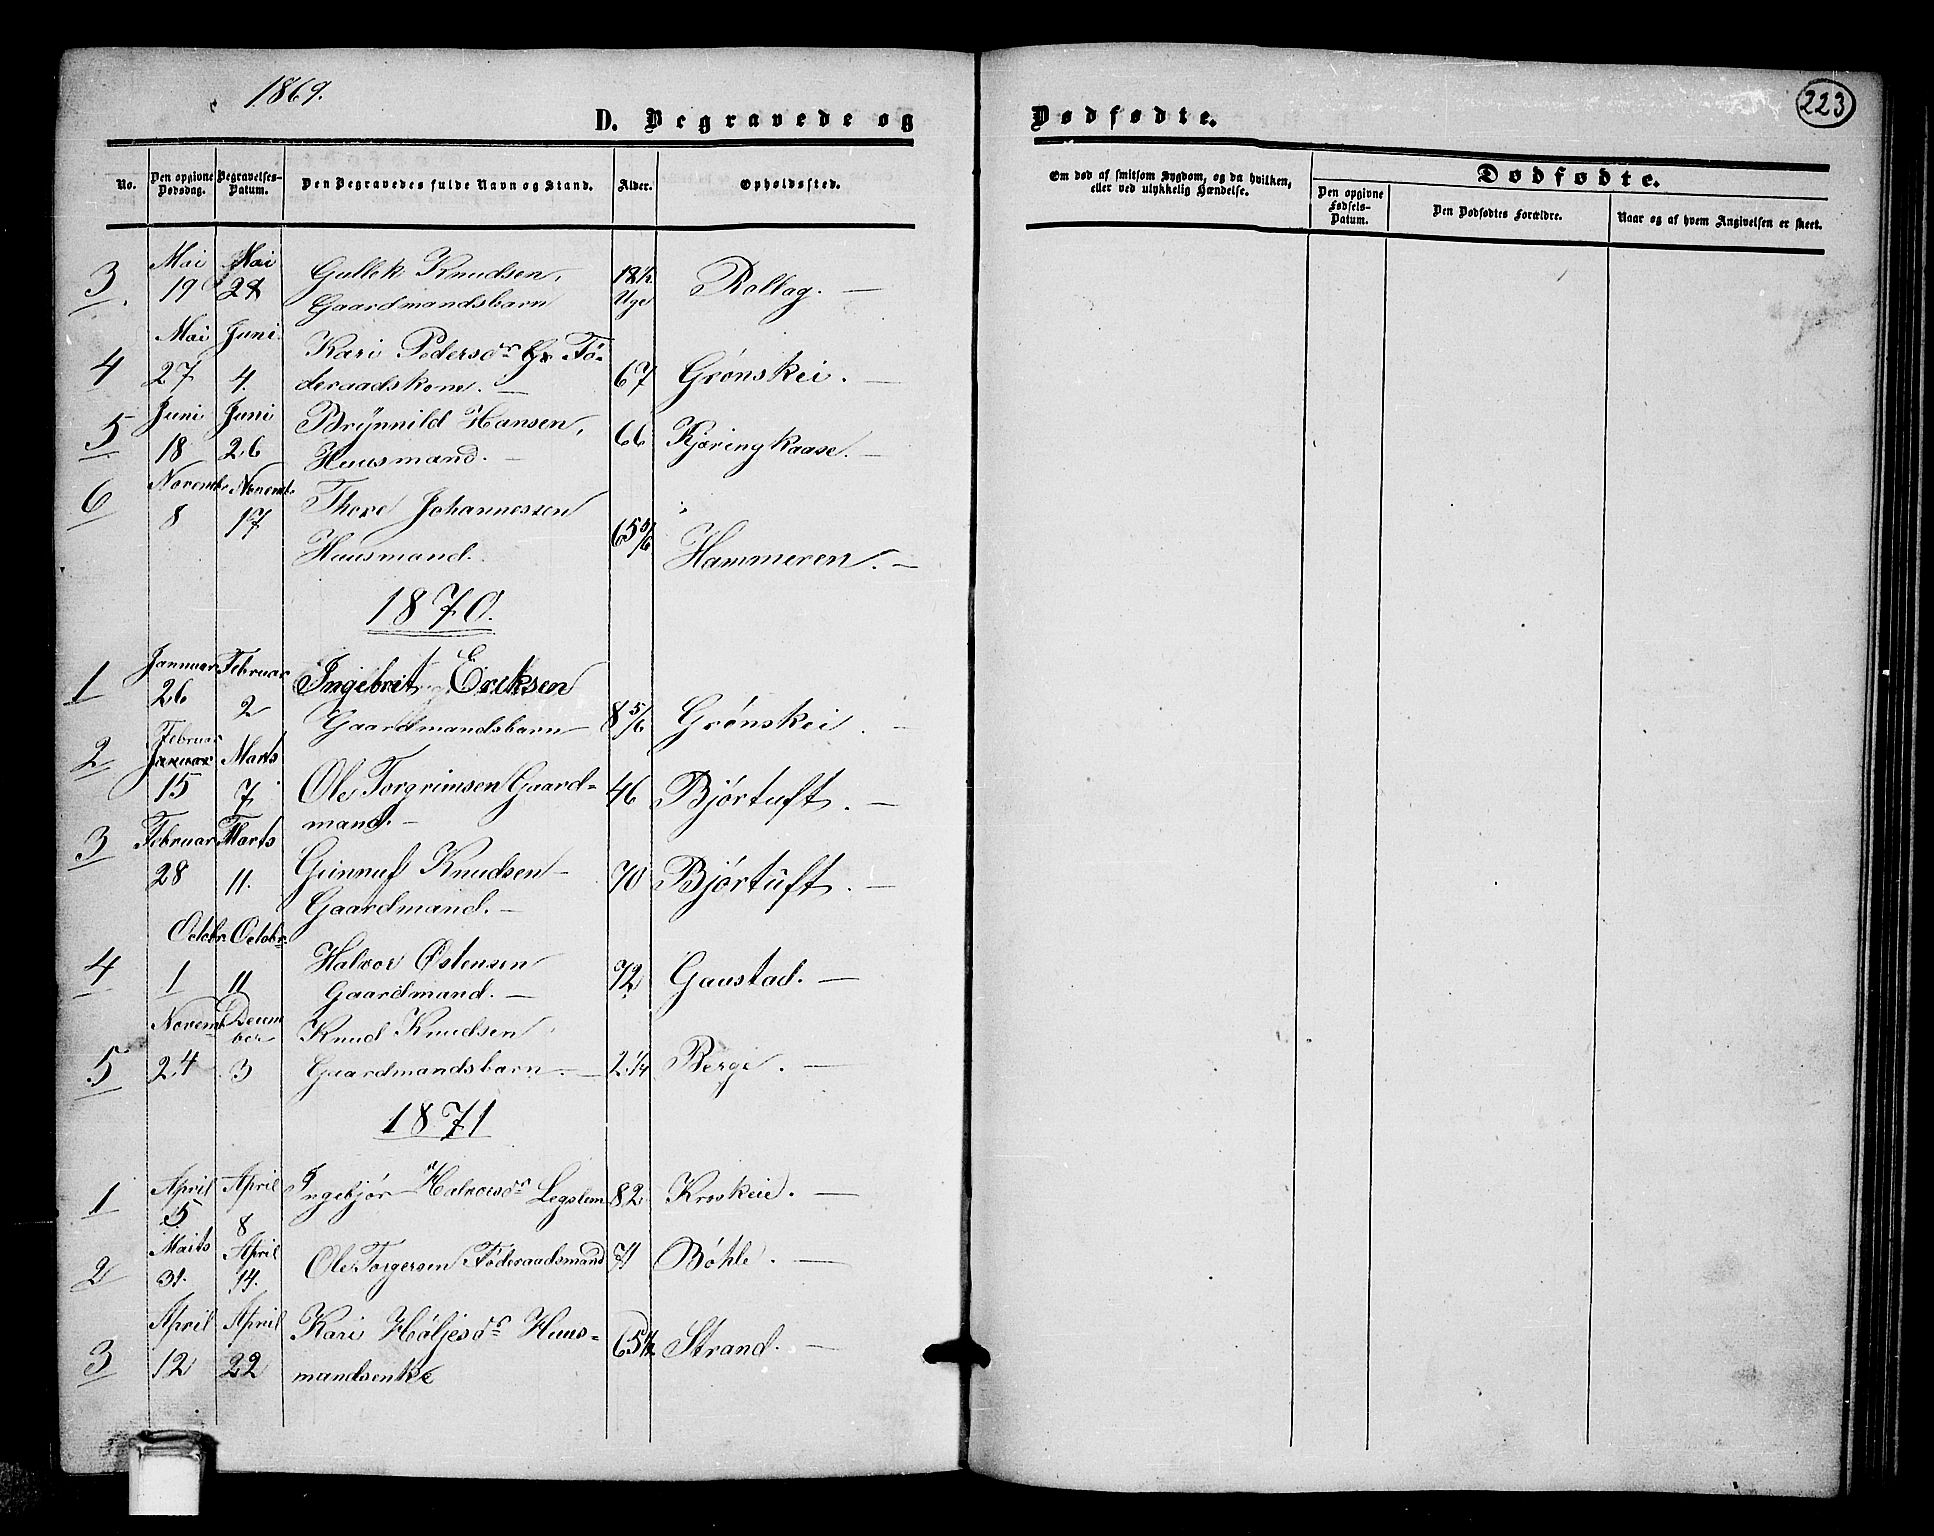 1869.
D. Begravede og
Dødfødte.
223
No.
Den opgivne Dødsdag.
Begravelses-Datum.
Den Begravedes fulde Navn og Stand.
Alder.
Opholdssted.
Om død af smitsom Sygdom, og da hvilken, eller ved ulykkelig Hændelse.
Dødfødte.
Den opgivne Fødsels-Datum.
Den Dødfødtes Forældre.
Naar og af hvem Angivelsen er skeet.
3 Mai 19 Mai Gullek Knudsen, Uge Rollag. —
Gaardmandsbarn
4 Mai 27 Juni 4. Kari Pedersdr Fø- 67 Grønskei. —
deraadskone. —
5 Juni 18 Juni 26 Brynnild Hansen, 66 Kjøringkaase. —
Huusmand. —
6 Novemb. 8 Novemb. 17 Thore Johannessen 65 5/6 Hammeren. —
Huusmand.
1870.
1 Januar 26 Februar 2 Ingebret Eriksen 8 5/6 Grønskei. —
Gaardmandsbarn —
2 Februar Januar 15 Marts 7 Ole Torgrimsen Gaard- 46 Bjørtuft. —
mand. —
3 Februar 28 Marts 11. Gunnuf Knudsen — 70 Bjørtuft. —
Gaardmand. —
4 Octobr. 1 Octobr. 11 Halvor Østensen 72 Gaustad. —
Gaardmand. —
5 Novemb 24 Decem ber 3 Knud Knudsen 2 1/4 Berge. —
Gaardmandsbarn. —
1871
1 April 5 April 8 Ingebjør Halvorsdr Legslem 82 Kroskeie. —
2 Marts 31. April 14. Ole Torgersen Føderaadsmand 71 Bøhle. —
3 April 12 April 22 Kari Høljesdr Huus- 65 1/2 Strand. —
mandsenke